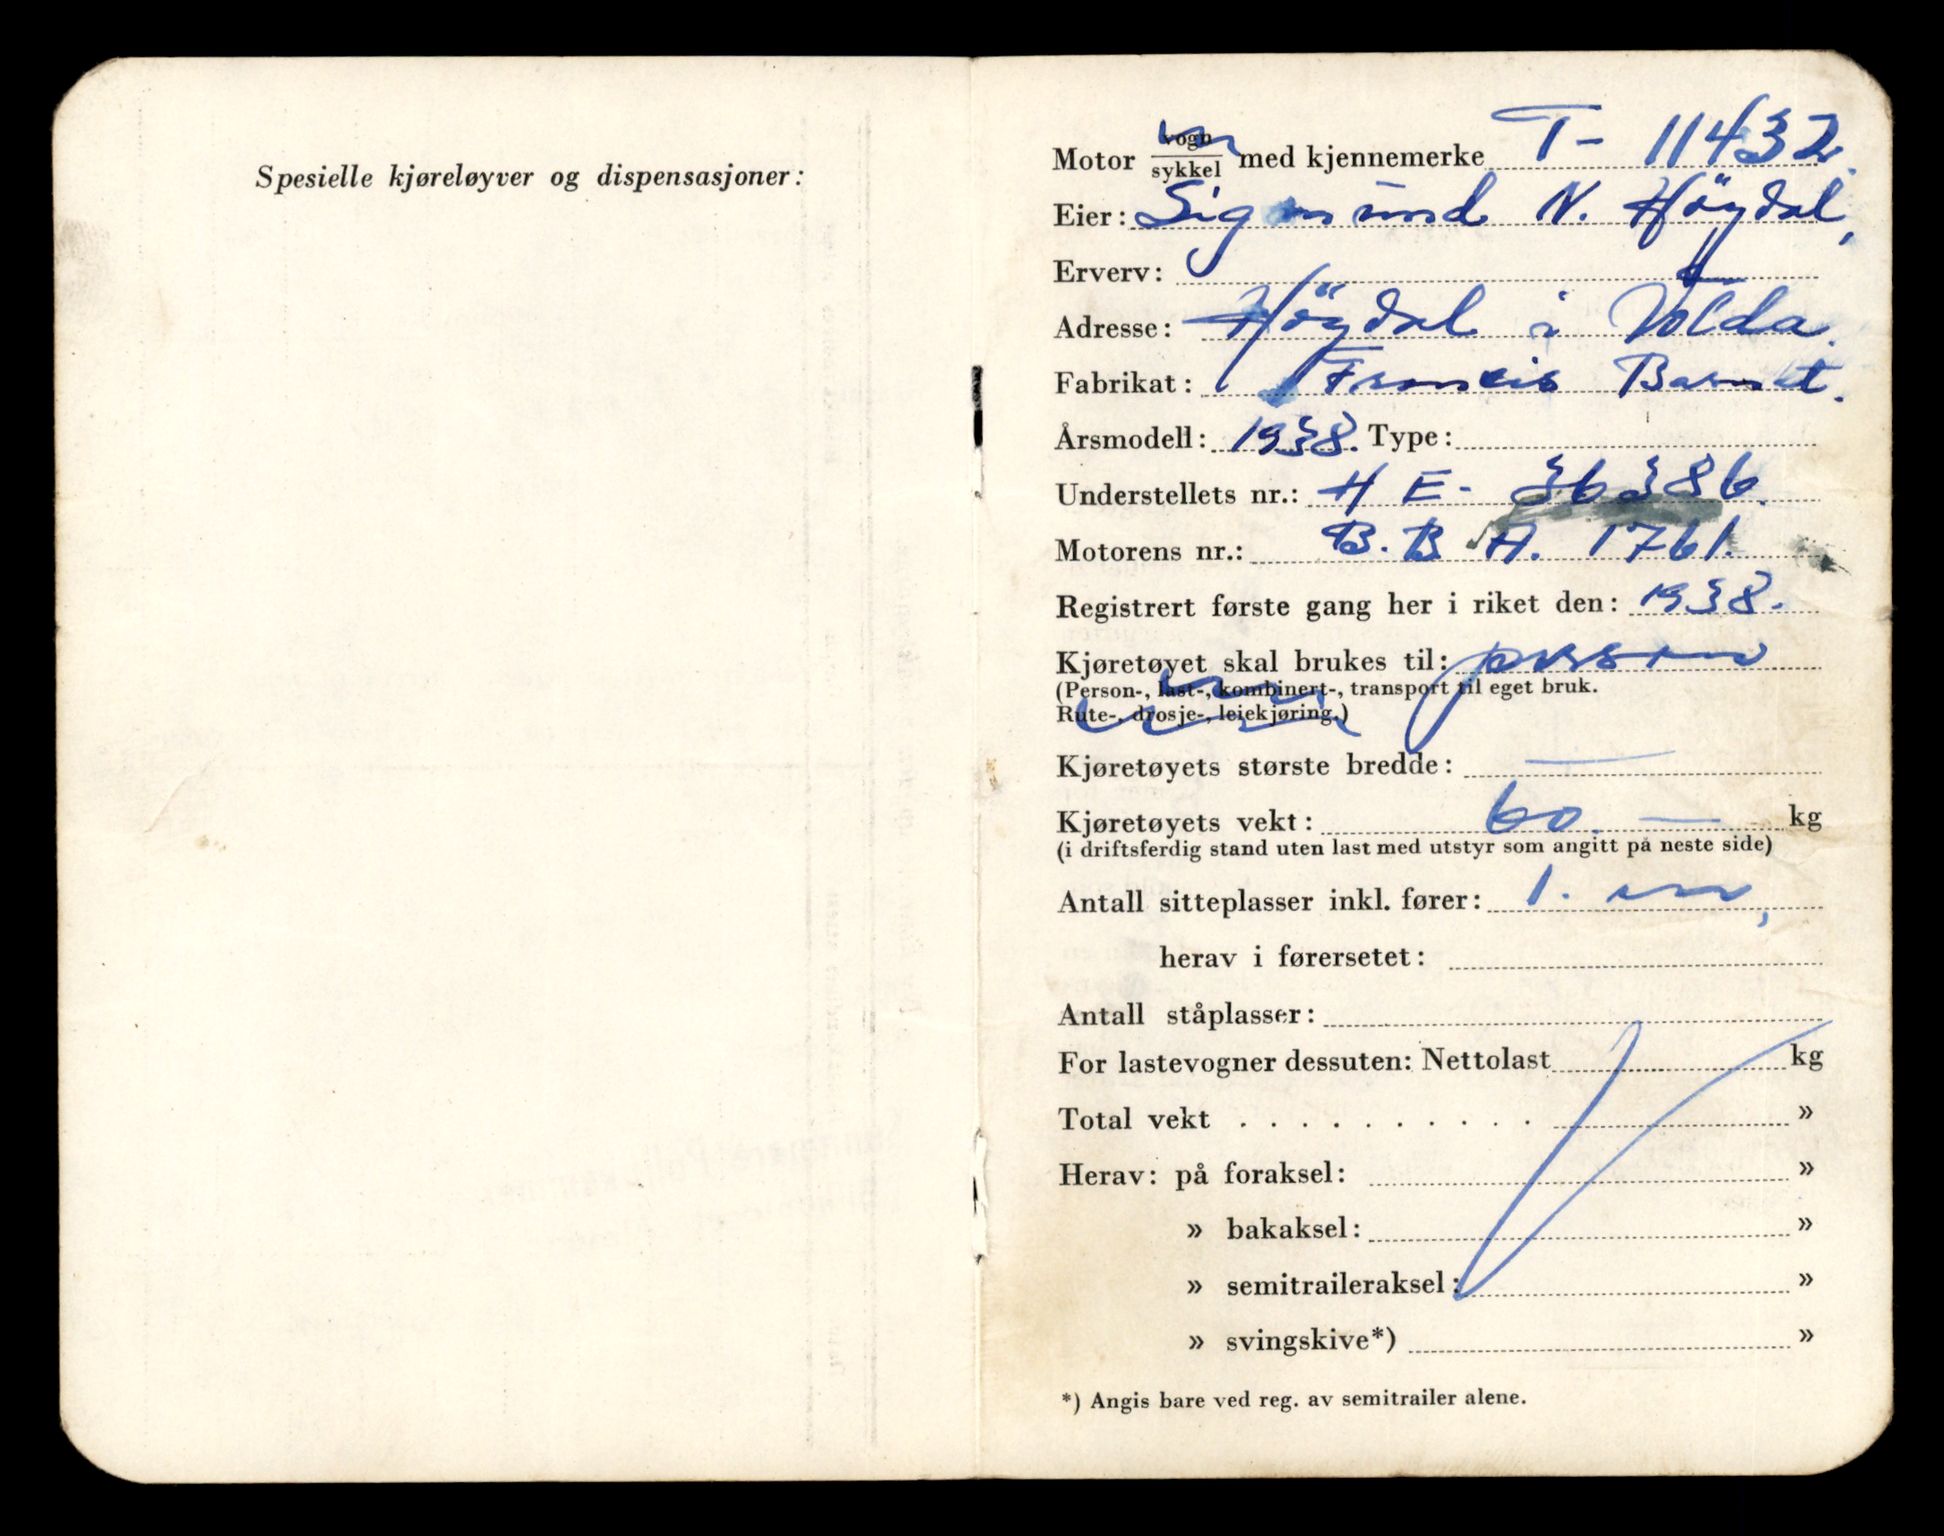 Spesielle kjøreløyver og dispensasjoner:
Motor vogn/sykkel med kjennemerke T- 11432.
Eier: Sigmund N. Höydal,
Erverv:
Adresse: Höydal i Volda.
Fabrikat: Francis Barnet.
Årsmodell: 1938. Type:
Understellets nr.: H E- 36386.
Motorens nr.: B. B A. 1761.
Registrert første gang her i riket den: 1938.
Kjøretøyet skal brukes til: person
(Person-, last-, kombinert-, transport til eget bruk.
Rute-, drosje-, leiekjøring.)
Kjøretøyets største bredde: —
Kjøretøyets vekt: 60. — kg
(i driftsferdig stand uten last med utstyr som angitt på neste side)
Antall sitteplasser inkl. fører: 1. en,
herav i førersetet:
Antall ståplasser:
For lastevogner dessuten: Nettolast kg
Total vekt . . . . . . . . . . »
Herav: på foraksel: »
» bakaksel: »
» semitraileraksel: »
» svingskive*) »
*) Angis bare ved reg. av semitrailer alene.